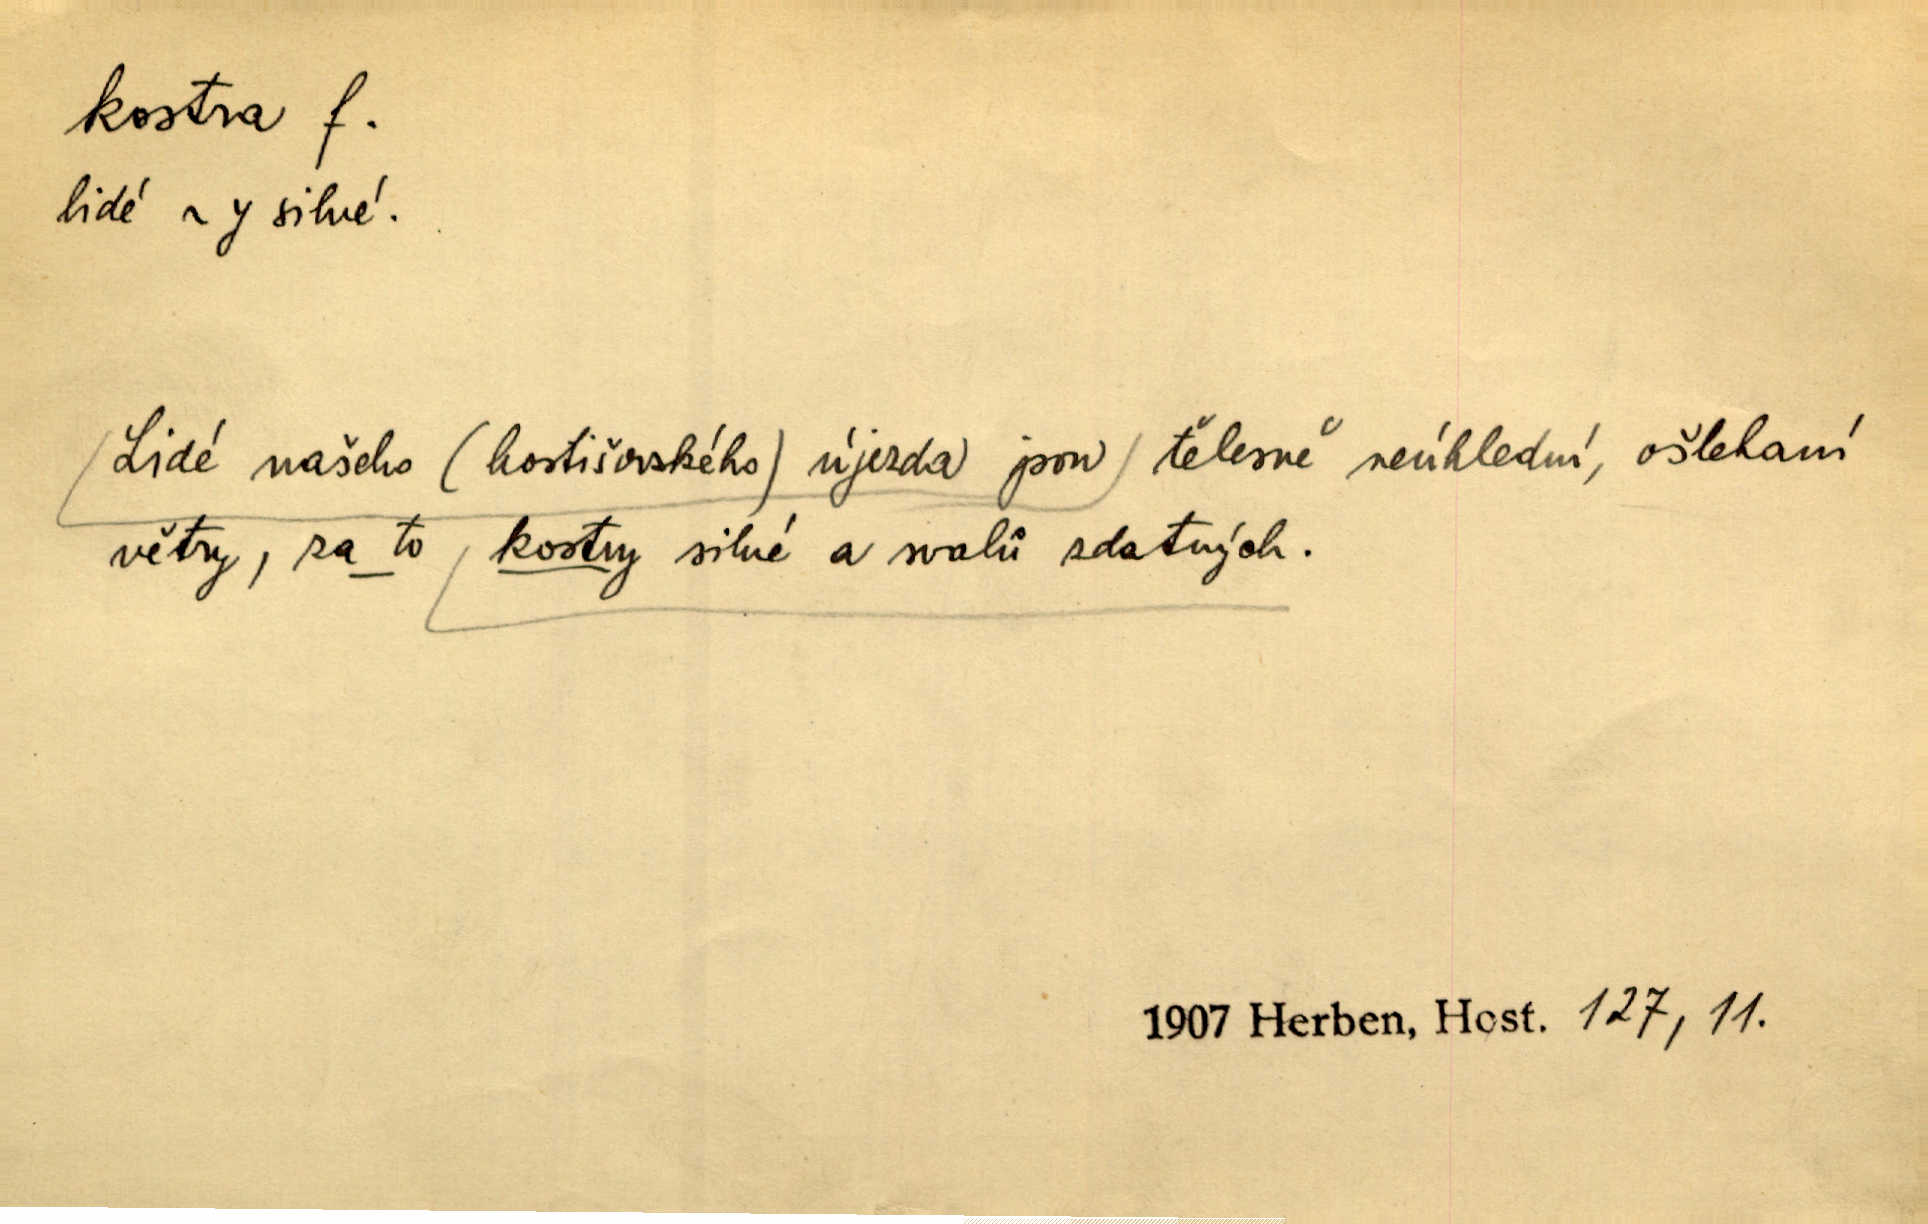 kostra f.
lidé ~y silné.
Lidé našeho (hostišovského) újezda jsou tělesně neúhlední, ošlehaní
větry, za to kostry silné a svalů zdatných.
1907 Herben, Host. 127, 11.